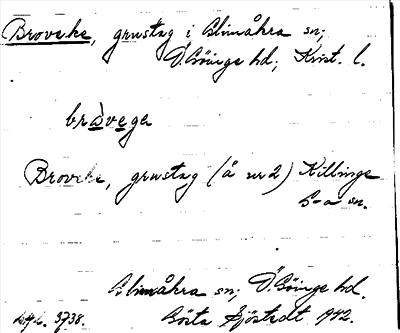 Broveke, grustag i Glimåkra sn;
Ö. Göinge hd; Krist. l.
bråvega
Broveke, grustag (å nr 2) Killinge
G-a sn.
Glimåkra sn; Ö. Göinge hd.
3738. Gösta Sjöstedt 1942.